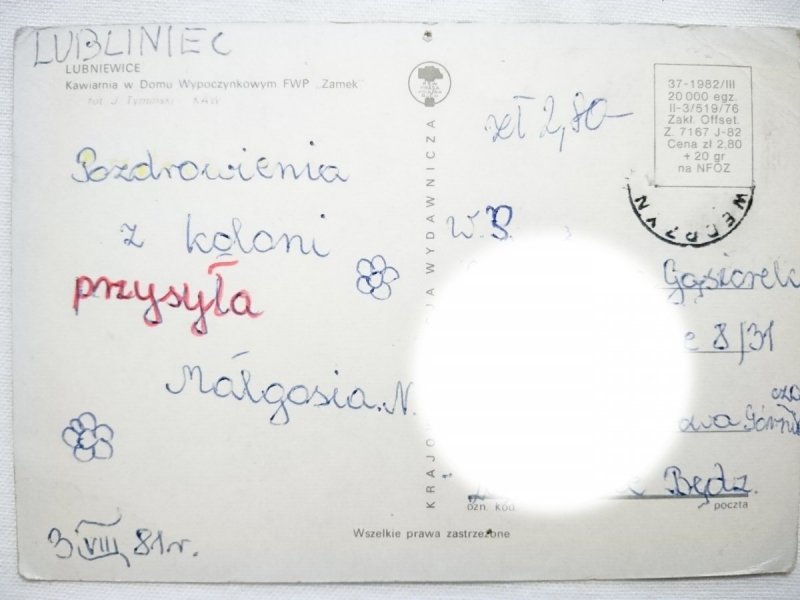 LUBLINIEC
LUBNIEWICE
Kawiarnia w Domu Wypoczynkowym FWP „Zamek"
fot. J. Tymiński KAW
37-1982/III
20 000 egz.
II-3/519/76
Zakł. Offset.
Z. 7167 J-82
Cena zł 2,80
+ 20 gr
na NFOZ
zł 2,80-
WĘDRZYN
Pozdrowienia
z koloni
przysyła
Małgosia. N.
3 VIII 81 r.
KRAJO JA WYDAWNICZA
W.P.
Gąsiorek
8/31
Będz.
ozn. kod poczta
Wszelkie prawa zastrzeżone